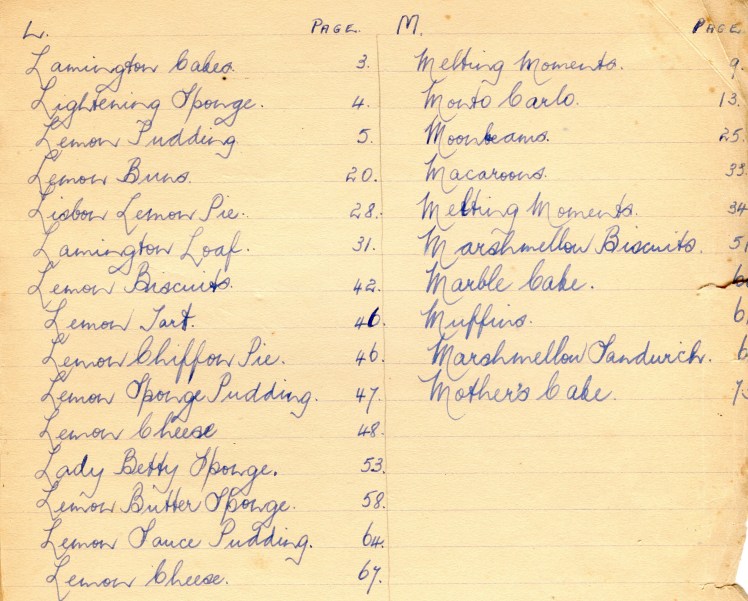 L. PAGE.
Lamington Cakes. 3.
Lightening Sponge. 4.
Lemon Pudding 5.
Lemon Buns. 20.
Lisbon Lemon Pie. 28.
Lamington Loaf. 31.
Lemon Biscuits. 42.
Lemon Tart. 46.
Lemon Chiffon Pie. 46.
Lemon Sponge Pudding. 47.
Lemon Cheese 48.
Lady Betty Sponge. 53.
Lemon Butter Sponge. 58.
Lemon Sauce Pudding. 64.
Lemon Cheese. 67.
M. PAGE.
Melting Moments. 9.
Monto Carlo. 13.
Moonbeams. 25.
Macaroons. 33.
Melting Moments. 34
Marshmellow Biscuits. 51
Marble Cake. 6
Muffins. 6
Marshmellow Sandwich. 6
Mother's Cake. 7